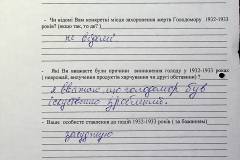 - Чи відомі Вам конкретні місця захоронення жертв Голодомору 1932-1933
років? (якщо так, то де? )
не відомі
- Які Ви вважаєте були причини виникнення голоду у 1932-1933 роках
( неврожай, вилучення продуктів харчування чи другі обставини) ?
я вважаю, що голодомор був
іскуствено зроблений.
- Ваше особисте ставлення до подій 1932-1933 років ( за бажанням)
засуджую